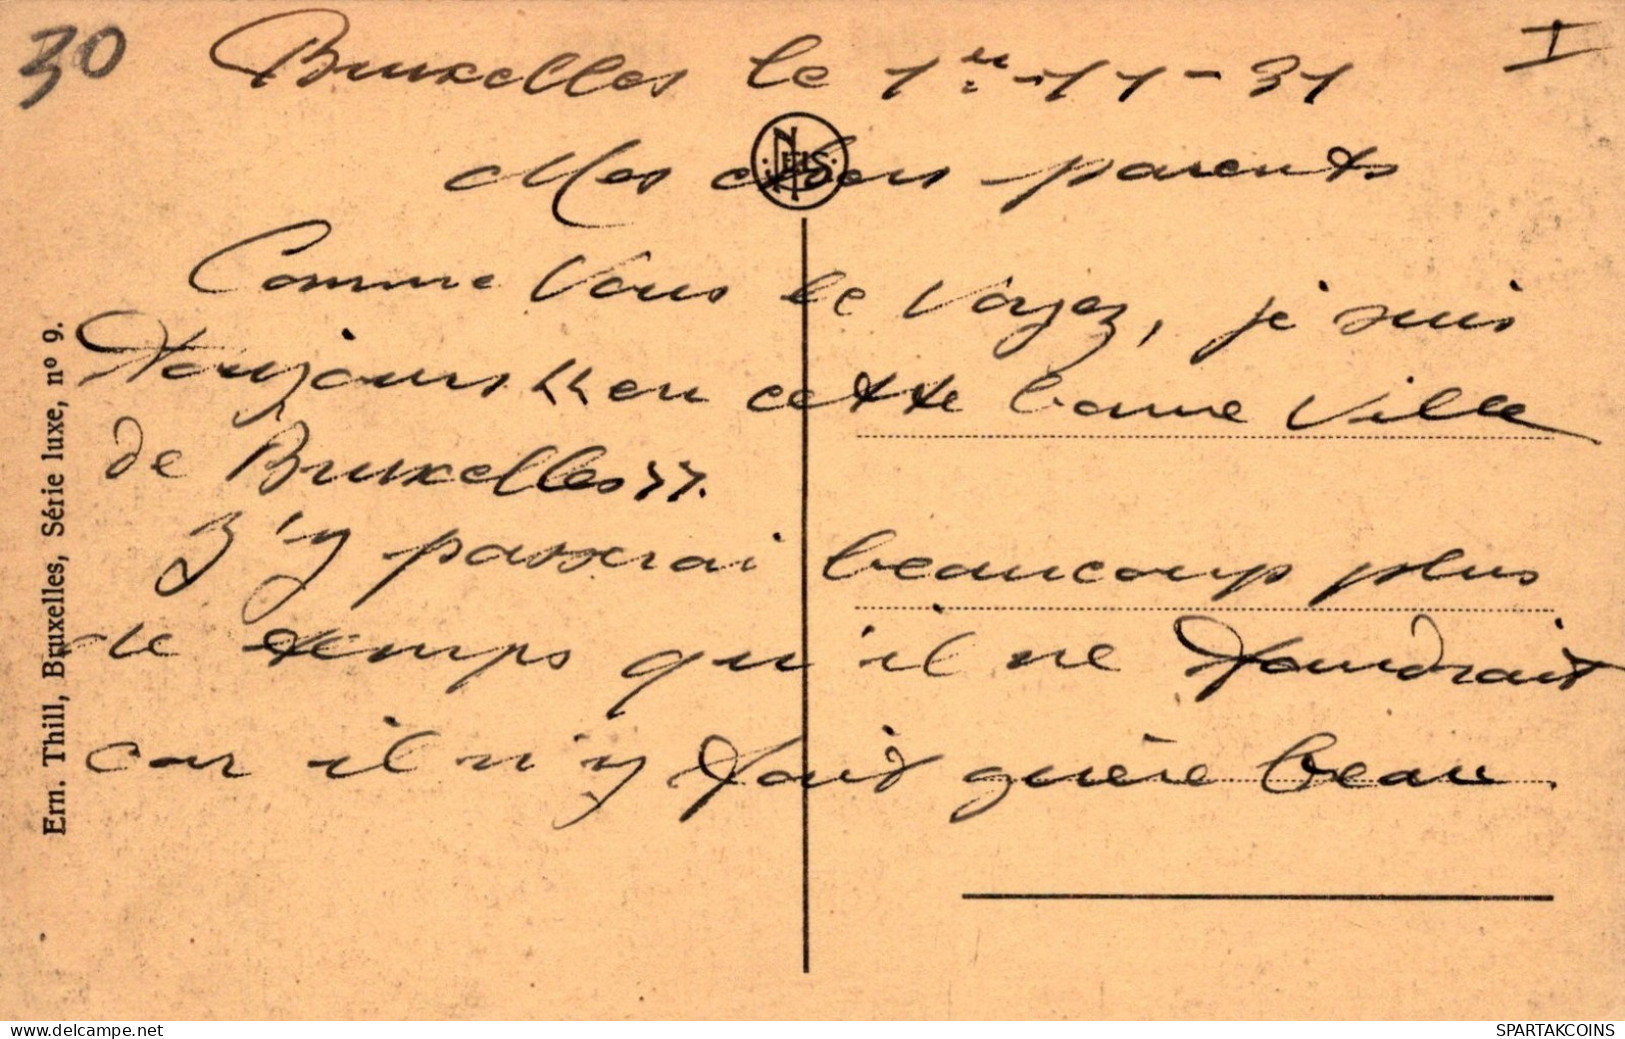 30
Bruxelles le 1er-11-31
I
Mes chers parents
NELS
Comme Vous le Voyez, je suis
toujours << en cette bonne Ville
de Bruxelles >>.
J'y passerai beaucoup plus
de temps qu'il ne faudrait
car il n'y fait guère beau.
Ern. Thill, Bruxelles, Série luxe, nº 9.
www.delcampe.net
SPARTAKCOINS